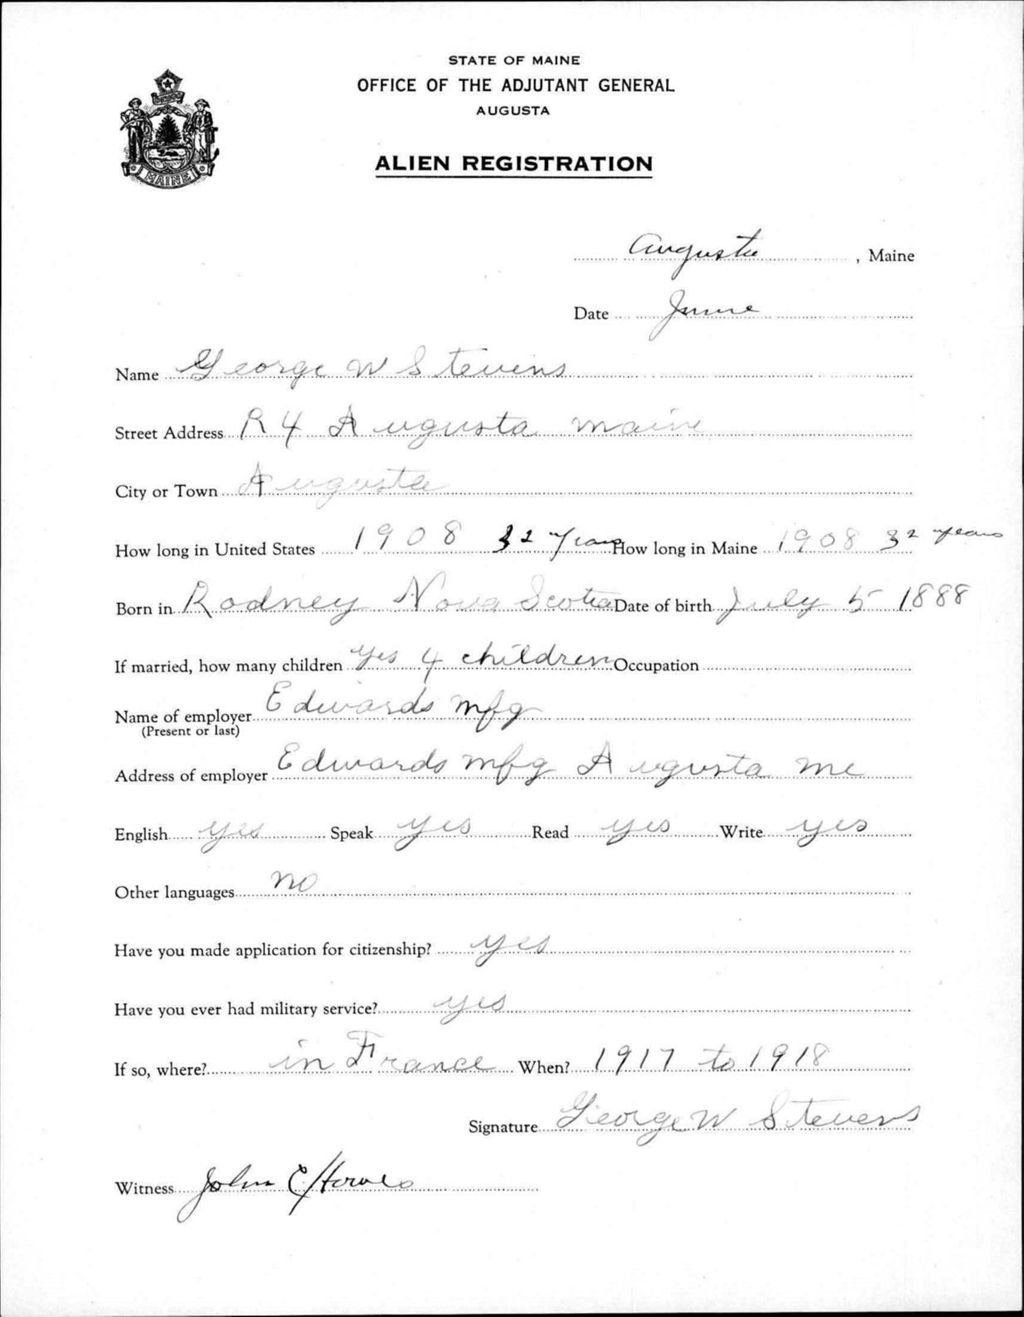 STATE OF MAINE
OFFICE OF THE ADJUTANT GENERAL
AUGUSTA
ALIEN REGISTRATION
MAINE
Augusta, Maine
Date June
Name George W Stevens
Street Address R 4 Augusta Maine
City or Town Augusta
How long in United States 1908 32 Years How long in Maine 1908 32 years
Born in Rodney Nova Scotia Date of birth July 5 1888
If married, how many children Yes 4 children Occupation
Name of employer Edwards Mfg
(Present or last)
Address of employer Edwards Mfg Augusta Me
English yes Speak yes Read yes Write yes
Other languages no
Have you made application for citizenship? yes
Have you ever had military service? yes
If so, where? in France When? 1917 to 1918
Signature George W Stevens
Witness John C Howes